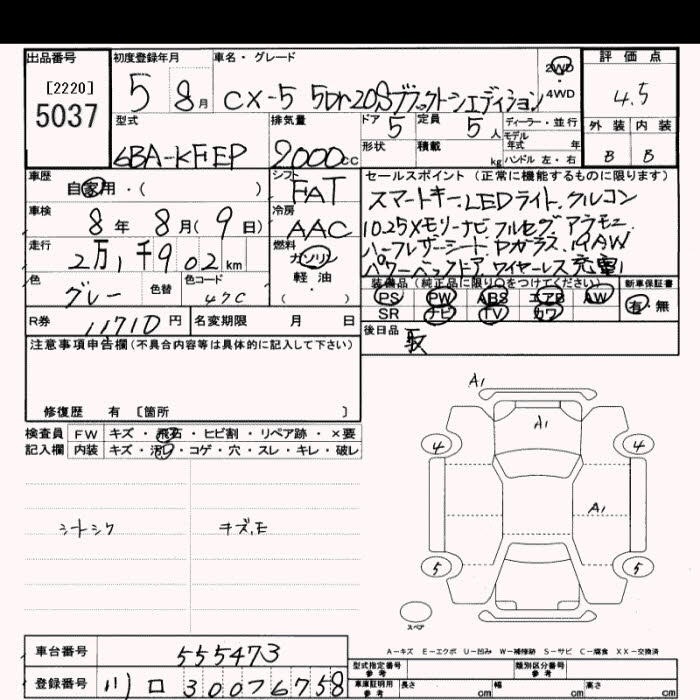 出品番号 初度登録年月 車名・グレード 2WD・4WD 評価点
[2220]
5037
5 8月 CX-5 5Dr 20Sブラックトーンエディション
4.5
型式 排気量 ドア 5 定員 5人 ディーラー・並行
モデル年式 年
外装 内装
B B
6BA-KFEP 2000cc
形状 積載 kg ハンドル 左・右
車歴 自家用・( )
シフト FAT
セールスポイント(正常に機能するものに限ります)
スマートキー、LEDライト、クルコン
10.25×モリーナビ、フルセグ、アラモニ
ハーフレザーシート、Pガラス、19AW
パワーバックドア、ワイヤーレス充電
車検 8年 8月(9日)
冷房 AAC
走行 2万1千902km
燃料 ガソリン・軽油・
色 グレー 色替 色コード 47C
装備品(純正品に限り○をつけてください) 新車保証書
PS PW ABS エアB AW 有・無
SR ナビ TV カワ
R券 11710円 名変期限 月 日
後日品 取
注意事項申告欄(不具合内容等は具体的に記入して下さい)
修復歴 有 [箇所 ]
検査員記入欄
FW キズ・飛石・ヒビ割・リペア跡・×要
内装 キズ・汚れ・コゲ・穴・スレ・キレ・破レ
シートシワ キズ、モ
A1
A1
4 4
A1
5 5
スペア
A-キズ E-エクボ U-凹み W-補修跡 S-サビ C-腐食 XX-交換済
車台番号 555473
登録番号 川口 300 7 6758
型式指定番号参考 類別区分番号参考
車庫証明用参考 長さ cm 幅 cm 高さ cm